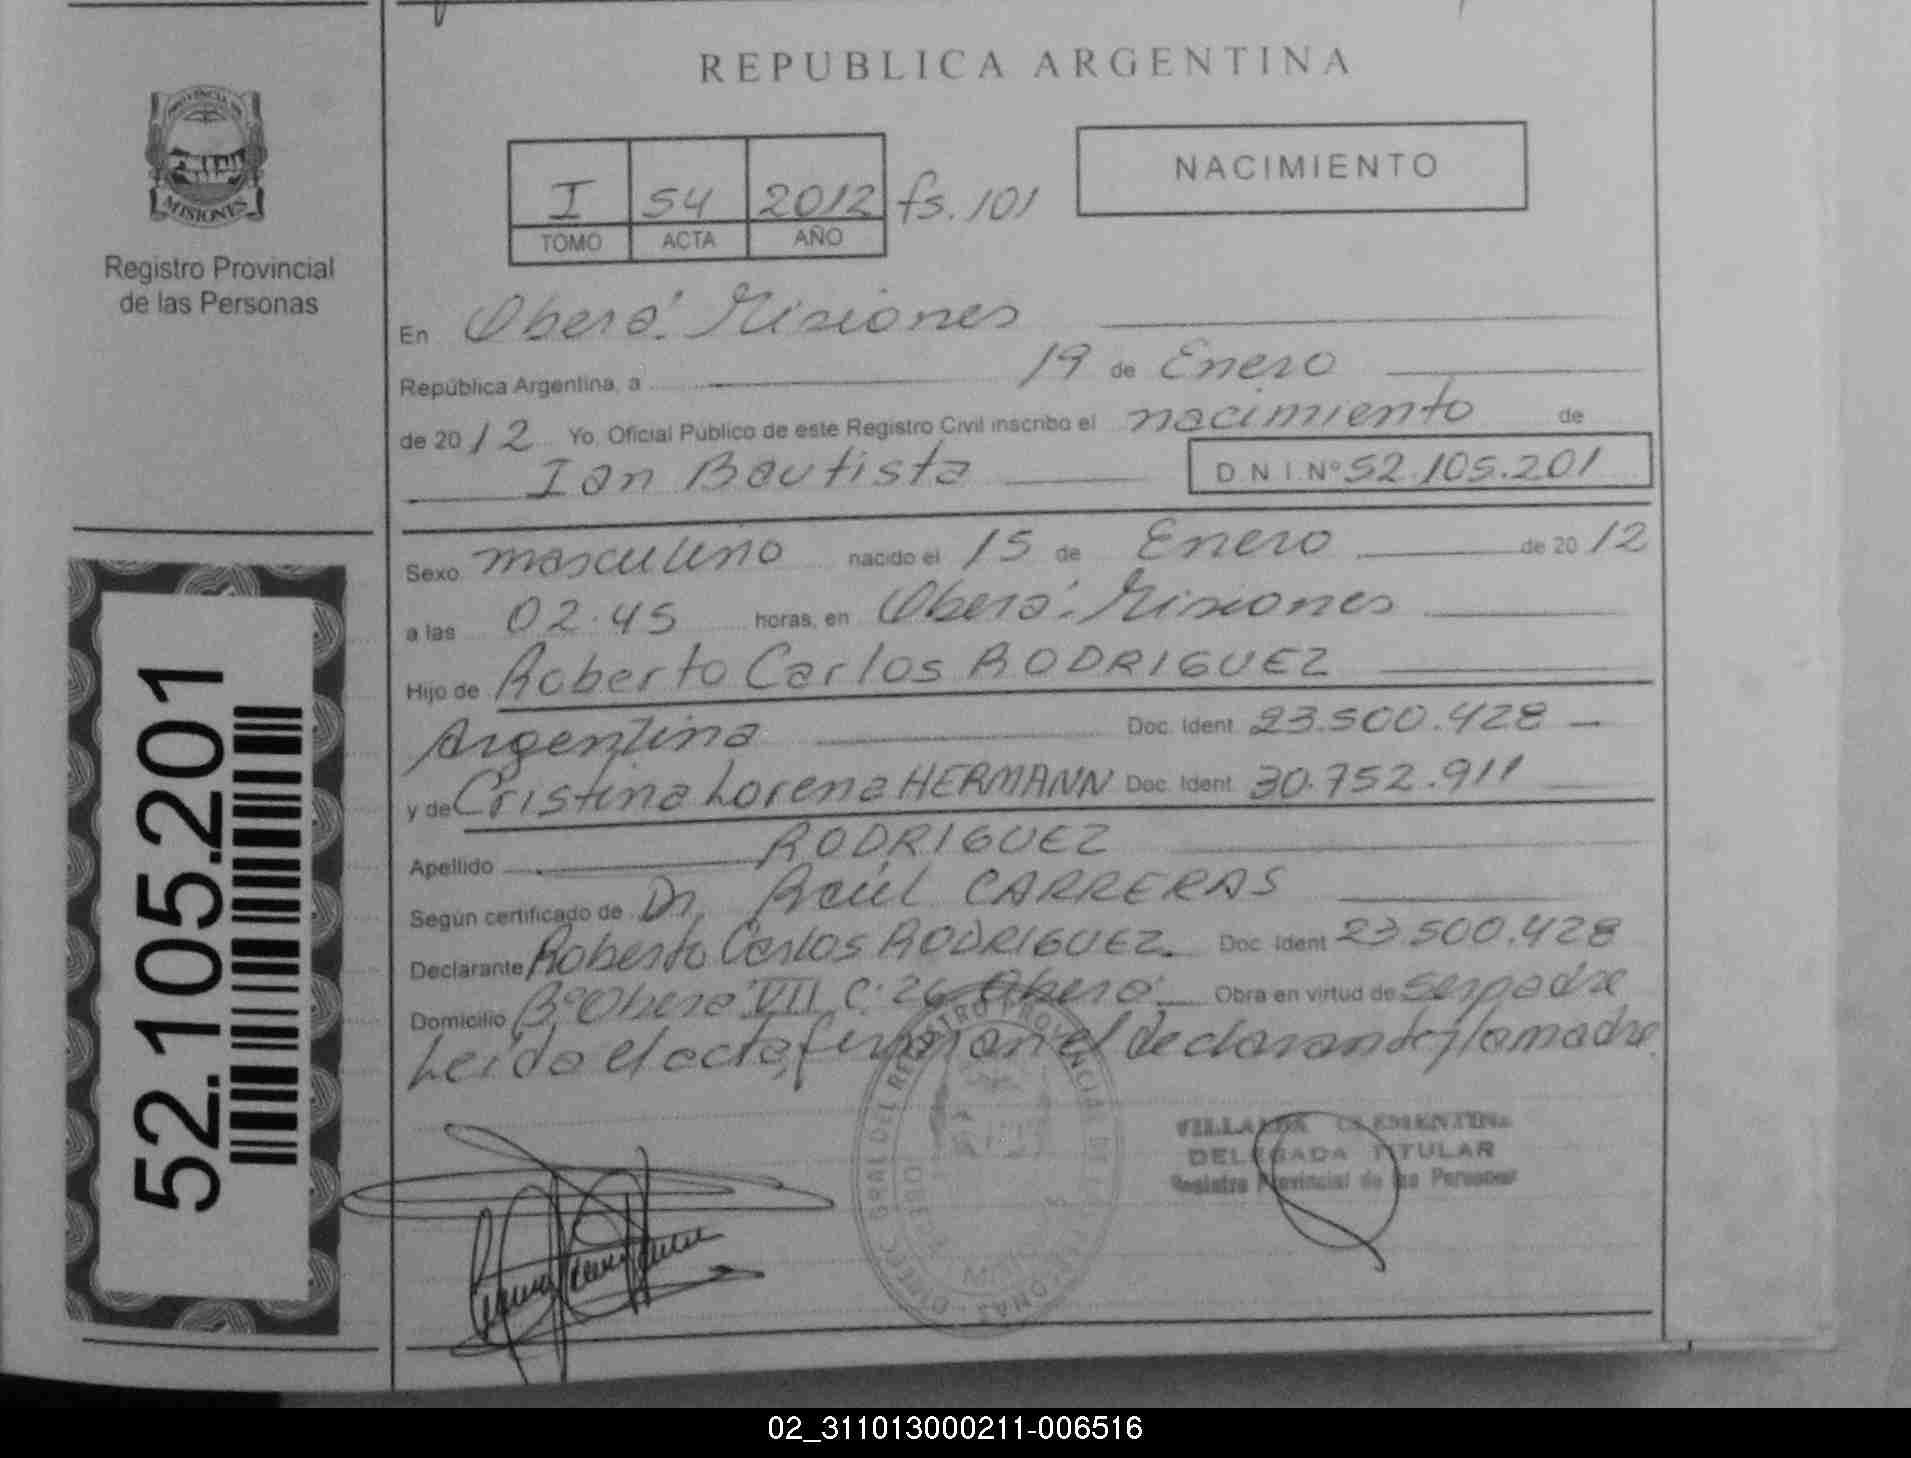 REPUBLICA ARGENTINA
PROVINCIA DE
MISIONES
Registro Provincial
de las Personas
NACIMIENTO
I 54 2012 fs. 101
TOMO ACTA AÑO
En Oberá. Misiones
República Argentina, a 19 de Enero
de 2012 Yo, Oficial Público de este Registro Civil inscribo el nacimiento de
Ian Bautista D.N.I. Nº 52.105.201
Sexo masculino nacido el 15 de Enero de 2012
a las 02.45 horas, en Oberá. Misiones
Hijo de Roberto Carlos RODRIGUEZ
Argentina Doc. Ident. 23.500.428
y de Cristina Lorena HERMANN Doc. Ident. 30.752.911
Apellido RODRIGUEZ
Según certificado de Dr. Raúl CARRERAS
Declarante Roberto Carlos RODRIGUEZ. Doc. Ident 23.500.428
Domicilio Bº Oberá VII C. 26 Oberá Obra en virtud de ser padre
Leída el acta, firman el declarante y la madre.
52.105.201
VILLALBA CLEMENTINA
DELEGADA TITULAR
Registro Provincial de las Personas
DIREC. GRAL DEL REGISTRO PROVINCIAL DE LAS PERSONAS
02_311013000211-006516